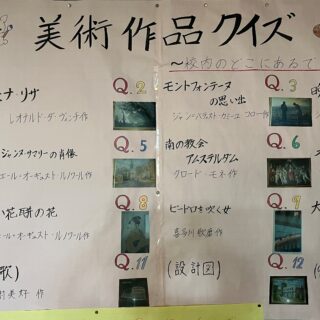 美術作品クイズ
〜校内のどこにあるで
Q.2
モントフォンテーヌ
の思い出
ジャン・バティスト・カミーユ・コロー作
Q.3
ナ・リザ
レオナルド・ダ・ヴィンチ作
ジャンヌ・サマリーの肖像
エール・オーギュスト・ルノワール作
Q.5
南の教会
アムステルダム
クロード・モネ作
Q.6
花瓶の花
エール・オーギュスト・ルノワール作
Q.8
ビードロを吹く女
喜多川歌麿作
Q.9
歌)
作
Q.11
(設計図)
Q.12